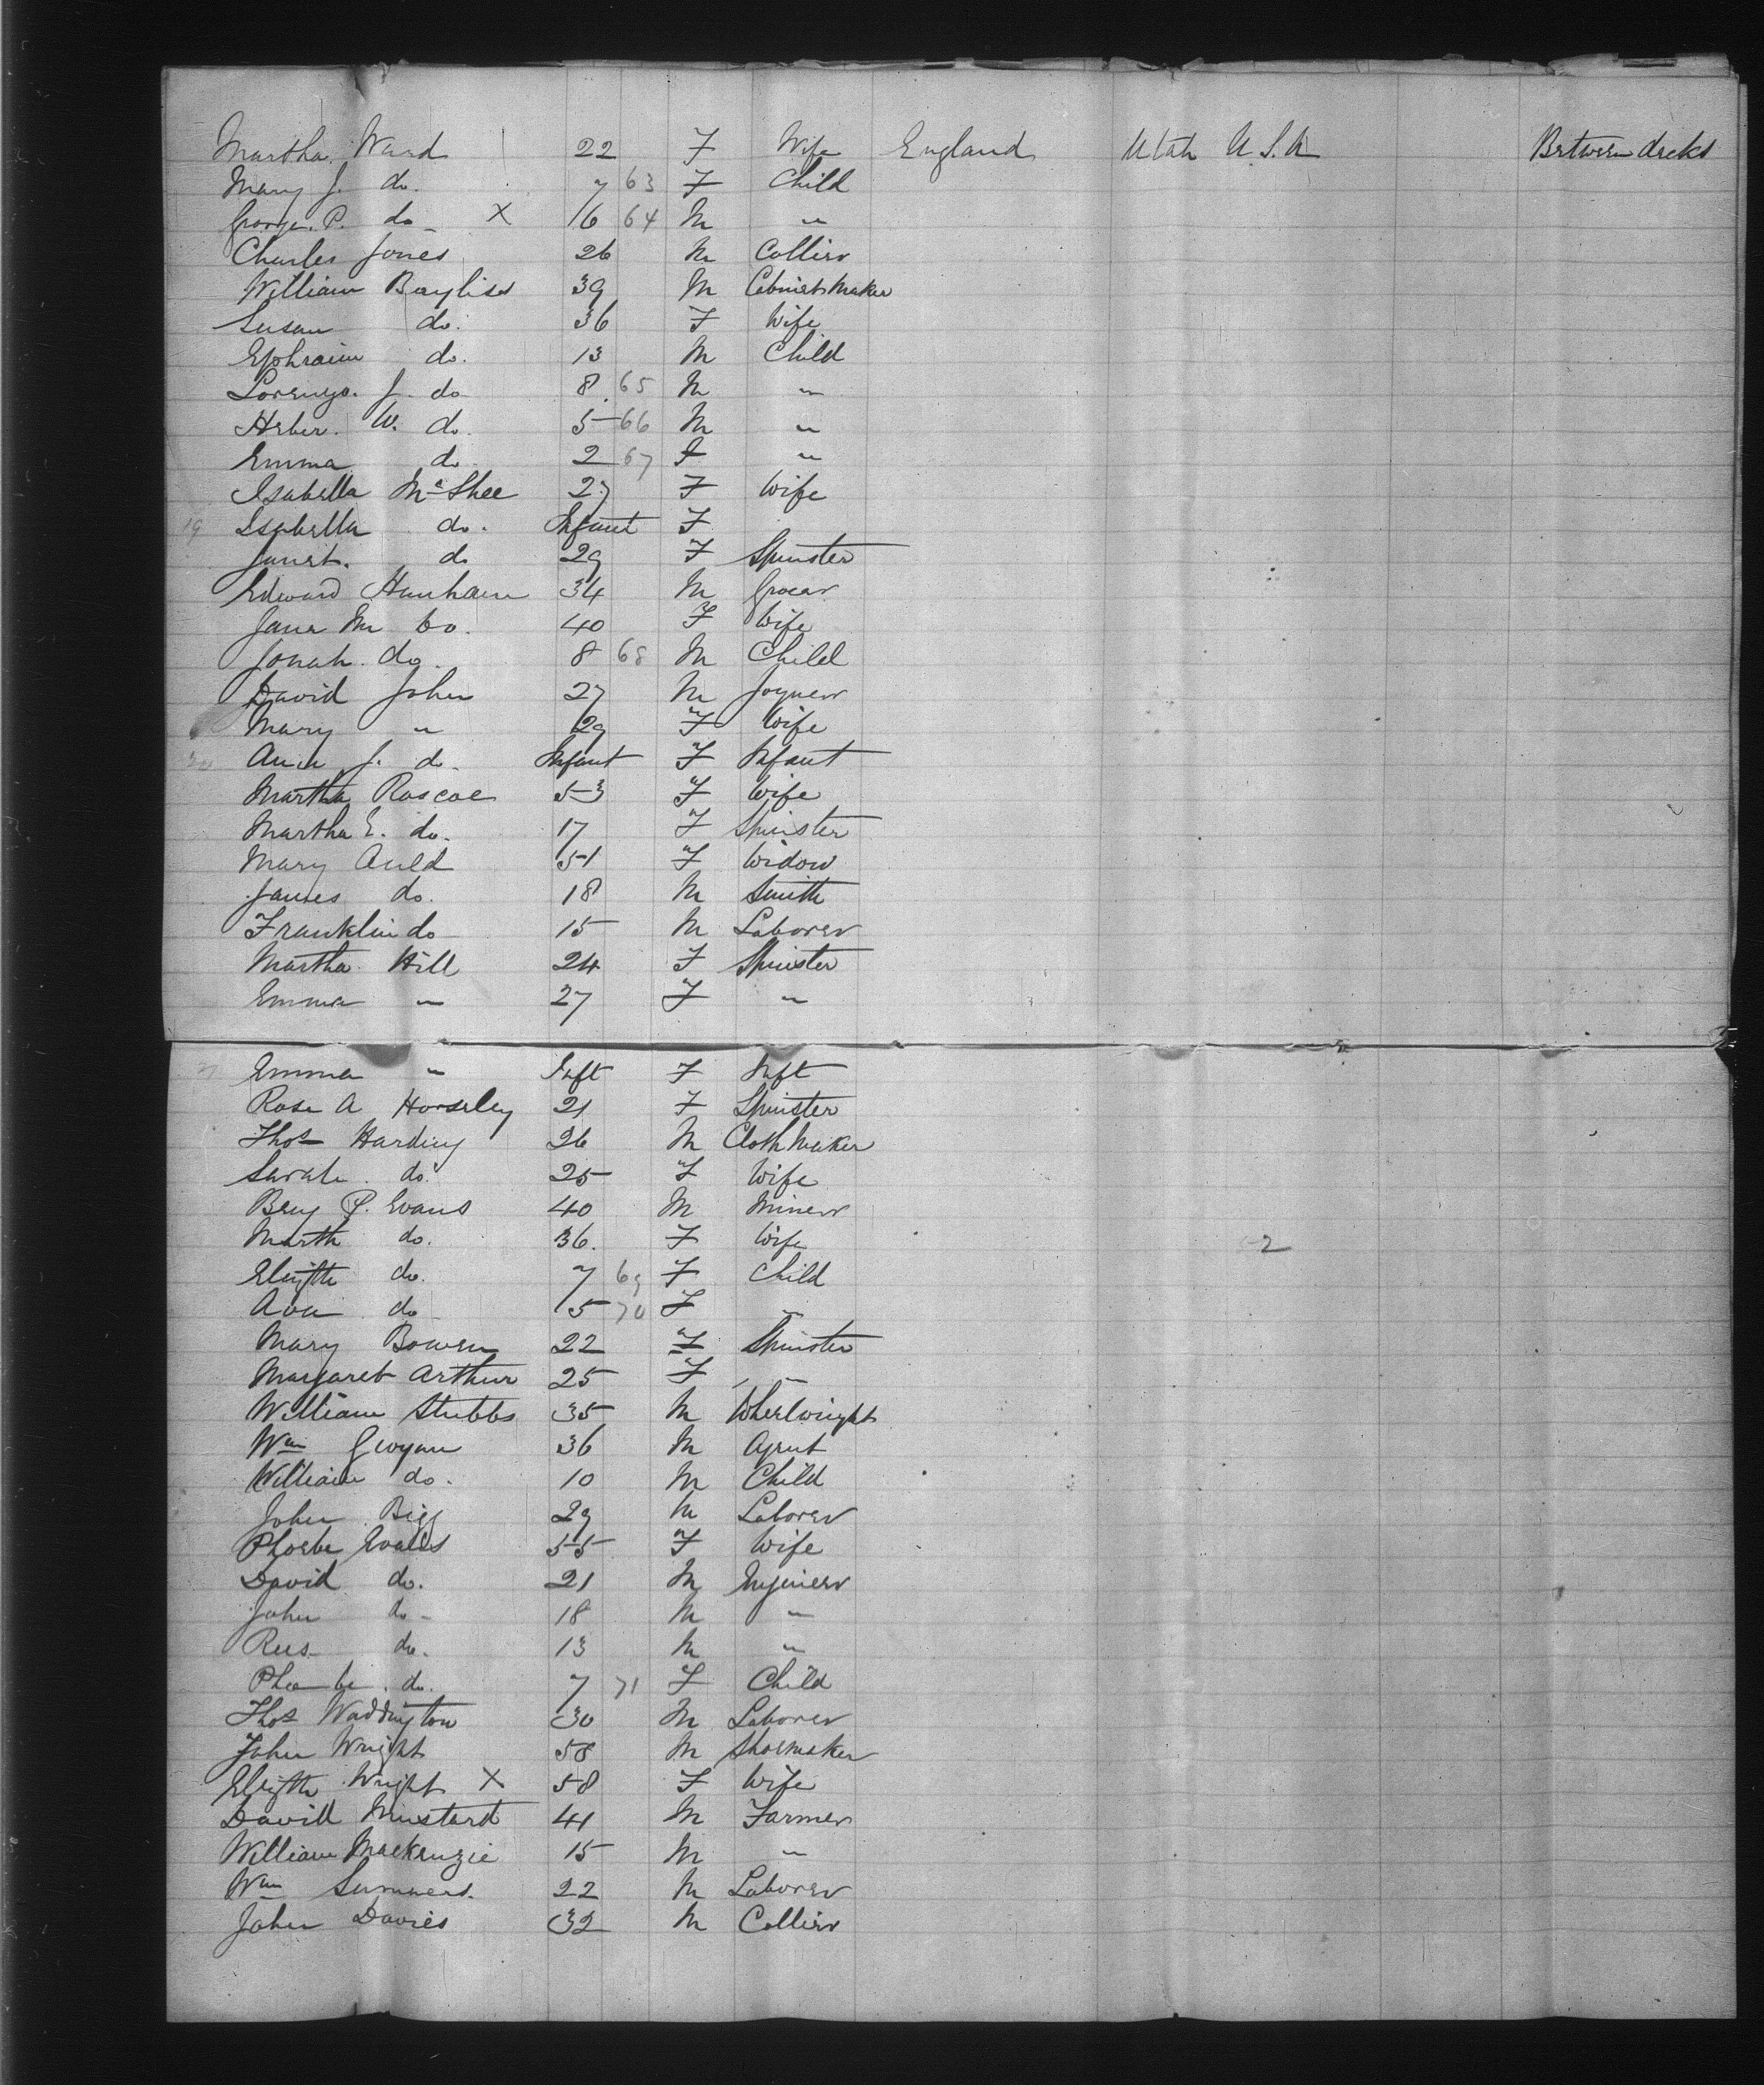 Martha Ward 22 F Wife England Utah U.S.A Between decks
Mary J. do. 7 63 F Child
George. P. do X 6 64 M "
Charles Jones 26 M Collier
William Bayliss 39 M Cabinet Maker
Susan do. 36 F Wife
Ephraim do. 13 M Child
Lorenzo. J. do 8 65 M "
Heber. W. do. 5 66 M "
Emma do. 2 67 F "
Isabella McShee 27 F Wife
19 Isabella do. Infant F
Janet. do 29 F Spinster
Edward Hanham 34 M Grocer
Jane M do. 40 F Wife
Jonah. do. 8 68 M Child
David John 27 M Joyner
Mary " 29 F Wife
20 Ann J. do. Infant F Infant
Martha Roscoe 53 F Wife
Martha E. do. 17 F Spinster
Mary Auld 51 F Widow
James do. 18 M Smith
Franklin do 15 M Laborer
Martha Hill 24 F Spinster
Emma " 27 F "
21 Emma " Inft F Inft
Rose A Horseley 21 F Spinster
Thos Harding 26 M Cloth Maker
Sarah do. 25 F Wife
Benj P. Evans 40 M Miner
Marth do. 36. F Wife
Elizth do. 7 69 F Child
Ann do 5 70 F "
Mary Bowen 22 F Spinster
Margaret Arthur 25 F "
William Stubbs 35 M Wheelwright
Wm Gwynn 36 M Agent
William do. 10 M Child
John Bigg 29 M Laborer
Phoebe Evans 55 F Wife
David do. 21 M Engineer
John do 18 M "
Rees do. 13 M "
Phoebe. do. 7 71 F Child
Thos Waddington 30 M Laborer
John Wright 58 M Shoemaker
Elizth Wright X 58 F Wife
David Mustard 41 M Farmer
William Mackenzie 15 M "
Wm Summers. 22 M Laborer
John Davies 32 M Collier